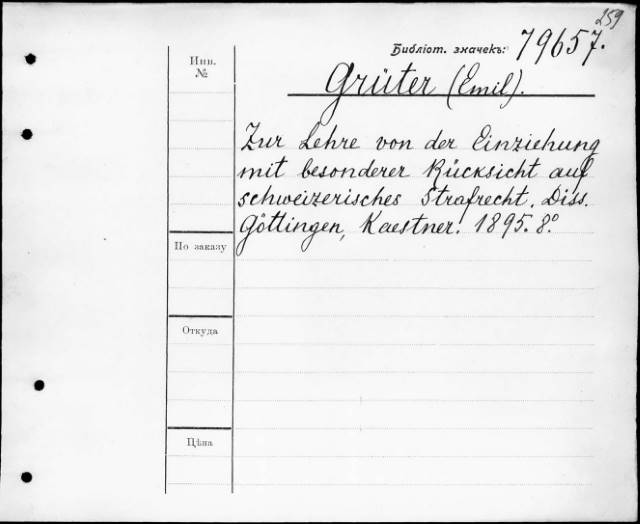 259
Библіот. значекъ: 79657.
Инв.
№
Grüter (Emil).
Zur Lehre von der Einziehung
mit besonderer Rücksicht auf
schweizerisches Strafrecht. Diss.
Göttingen, Kaestner. 1895. 8º.
По заказу
Откуда
Цѣна